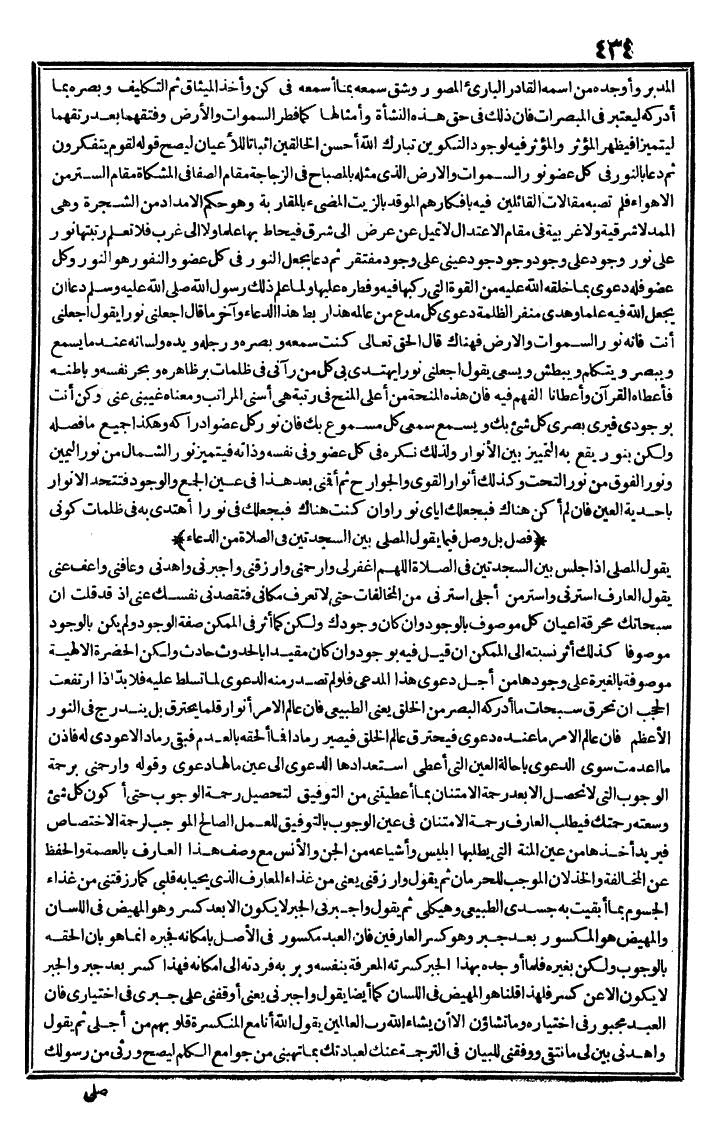 ٤٣٤
المدبر وأوجده من اسمه القادر البارئ المصور وشق سمعه بما أسمعه فى كن وأخذ الميثاق ثم التكليف وبصره بما
أدركه ليعتبر فى المبصرات فان ذلك فى حق هذه النشأة وأمثالها كما فطر السموات والأرض وفتقهما بعد رتقهما
ليتميزا فيظهر المؤثر والمؤثر فيه لوجود التكوين تبارك الله أحسن الخالقين اثباتا للأعيان ليصح قوله لقوم يتفكرون
ثم دعا بالنور فى كل عضو نور السموات والارض الذى مثله بالمصباح فى الزجاجة مقام الصفا فى المشكاة مقام الستر من
الاهواء فلم تصبه مقالات القائلين فيه بافكارهم الموقد بالزيت المضىء بالمقاربة وهو حكم الامداد من الشجرة وهى
الممد لا شرقية ولا غربية فى مقام الاعتدال لا تميل عن عرض الى شرق فيحاط بها علما ولا الى غرب فلا تعلم رتبتها نور
على نور وجود على وجود وجود جود عينى على وجود مفتقر ثم دعا بجعل النور فى كل عضو والنفور هو النور وكل
عضو فله دعوى بما خلقه الله عليه من القوة التى ركبها فيه وفطره عليها ولما علم ذلك رسول الله صلى الله عليه وسلم دعا ان
يجعل الله فيه علما وهدى منفر الظلمة دعوى كل مدع من عالمه هذا ربط هذا الدعاء وآخر ما قال اجعلنى نورا يقول اجعلنى
أنت فانه نور السموات والارض فهناك قال الحق تعالى كنت سمعه وبصره ورجله ويده ولسانه عند ما يسمع
ويبصر ويتكلم ويبطش ويسعى يقول اجعلنى نورا يهتدى بى كل من رآنى فى ظلمات بر ظاهره وبحر نفسه وباطنه
فأعطاه القرآن وأعطانا الفهم فيه فان هذه المنحة من أعلى المنح فى رتبة هى أسنى المراتب ومعناه غيبنى عنى وكن أنت
بوجودى فيرى بصرى كل شئ بك ويسمع سمعى كل مسموع بك فان نور كل عضو ادراكه وهكذا جميع ما فصله
ولكن بنور يقع به التمييز بين الأنوار ولذلك نكره فى كل عضو وفى نفسه وذاته فيتميز نور الشمال من نور اليمين
ونور الفوق من نور التحت وكذلك أنوار القوى والجوارح ثم أفنى بعد هذا فى عين الجمع والوجود فتتحد الانوار
باحدية العين فان لم أكن هناك فبجعلك اياى نورا وان كنت هناك فبجعلك فى نورا أهتدى به فى ظلمات كونى
﴿فصل بل وصل فيما يقول المصلى بين السجدتين فى الصلاة من الدعاء﴾
يقول المصلى اذا جلس بين السجدتين فى الصلاة اللهم اغفر لى وارحمنى وارزقنى واجبرنى واهدنى وعافنى واعف عنى
يقول العارف استرنى واستر من أجلى استرنى من المخالفات حتى لا تعرف مكانى فتقصدنى نفسك عنى اذ قد قلت ان
سبحاتك محرقة اعيان كل موصوف بالوجود وان كان وجودك ولكن كما أثر فى الممكن صفة الوجود ولم يكن بالوجود
موصوفا كذلك أثر نسبته الى الممكن ان قيل فيه بوجود وان كان مقيدا بالحدوث حادث ولكن الحضرة الالهية
موصوفة بالغيرة على وجودها من أجل دعوى هذا المدعى فلو لم تصدر منه الدعوى لما تسلط عليه فلا بد اذا ارتفعت
الحجب ان تحرق سبحات ما أدركه البصر من الخلق يعنى الطبيعى فان عالم الامر أنوار فلما يحترق بل يندرج فى النور
الأعظم فان عالم الامر ما عنده دعوى فيحترق عالم الخلق فيصير رمادا فما ألحقه بالعدم فبقى رماد الا عودى له فاذن
ما اعدمت سوى الدعوى باحالة العين التى أعطى استعدادها الدعوى الى عين ما لها دعوى وقوله وارحمنى برحمة
الوجوب التى لا تحصل الا بعد رحمة الامتنان بما أعطيتنى من التوفيق لتحصيل رحمة الوجوب حتى أكون كل شئ
وسعته رحمتك فيطلب العارف رحمة الامتنان فى عين الوجوب بالتوفيق للعمل الصالح الموجب لرحمة الاختصاص
فيريد أخذها من عين المنة التى يطلبها ابليس وأشياعه من الجن والأنس مع وصف هذا العارف بالعصمة والحفظ
عن المخالفة والخذلان الموجب للحرمان ثم يقول وارزقنى يعنى من غذاء المعارف الذى يحيا به قلبى كما رزقتنى من غذاء
الجسوم بما أبقيت به جسدى الطبيعى وهيكلى ثم يقول واجبرنى الجبر لا يكون الا بعد كسر وهو المهيض فى اللسان
والمهيض هو المكسور بعد جبر وهو كسر العارفين فان العبد مكسور فى الأصل بامكانه فجبره انما هو بان الحقه
بالوجوب ولكن بغيره فلما أوجده بهذا الجبر كسرته المعرفة بنفسه وبربه فردته الى امكانه فهذا كسر بعد جبر والجبر
لا يكون الا عن كسر فلهذا قلنا هو المهيض فى اللسان كما أيضا يقول واجبرنى يعنى أوقفنى على جبرى فى اختيارى فان
العبد مجبور فى اختياره وما تشاؤن الا أن يشاء الله رب العالمين يقول الله أنا مع المنكسرة قلوبهم من أجلى ثم يقول
واهدنى بين لى ما نتقى ووفقنى للبيان فى الترجمة عنك لعبادتك بما تهبنى من جوامع الكلم ليصح ورثى من رسولك
صلى